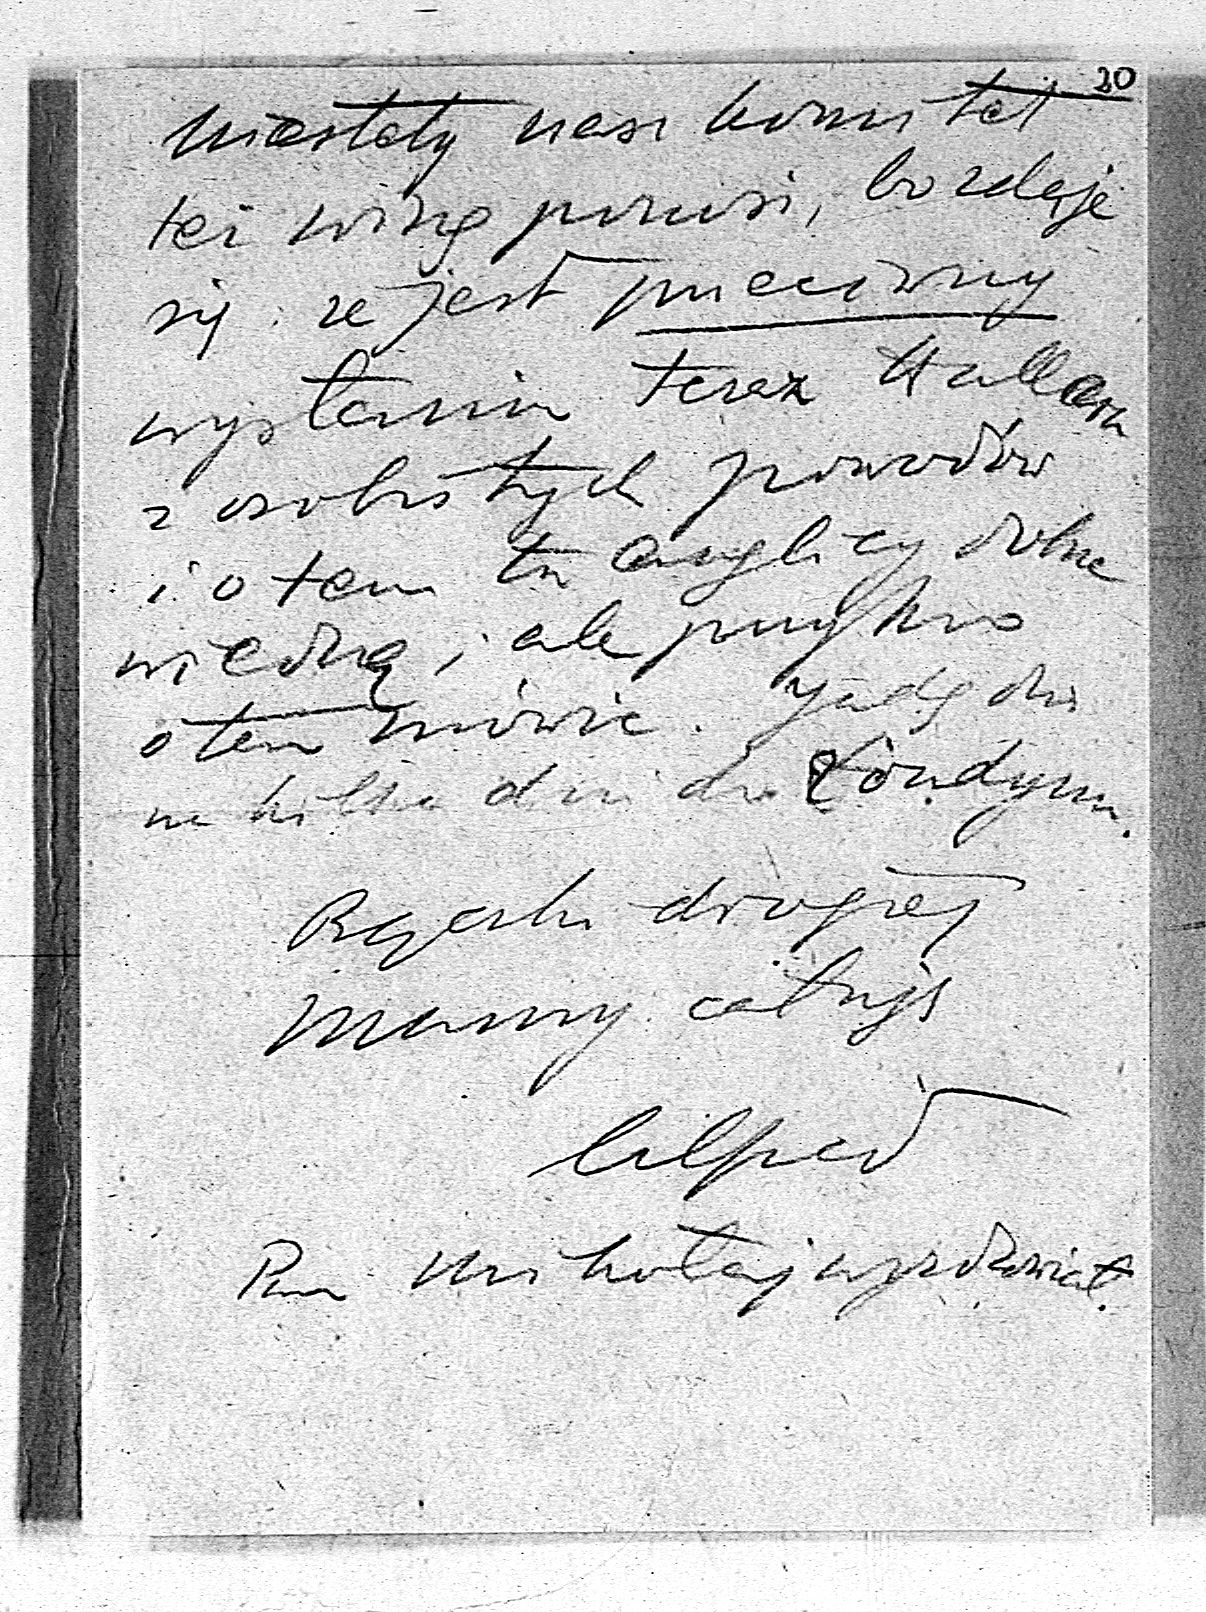 20
niestety nasz komitet
też winę ponosi, bo zdaje
się że jest przeciwny
wysłaniu teraz Hallera
z osobistych powodów
i o tem tu anglicy dobrze
wiedzą, ale przykro
o tem mówić. Jadę dziś
na kilka dni do Londynu.
Rączki drogiej
Mamy całuję
Alfred
Pan Mikołaj wyzdrowiał.